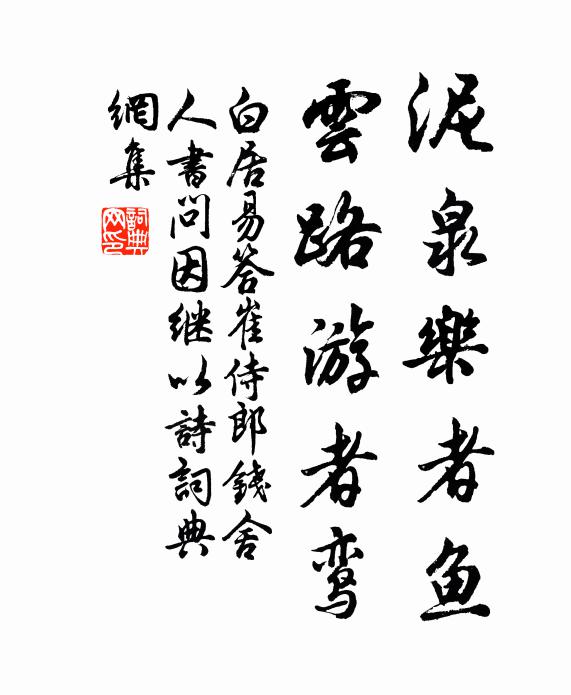 泥泉樂者鱼
雲路游者鸾
白居易答崔侍郎錢舍
人書問因继以詩詞典
網集
詞典网印